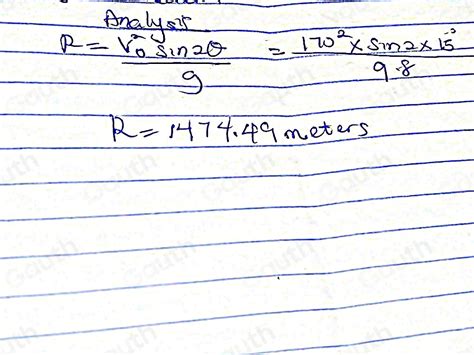 Analysis
R = V₀² sin2θ / g = 170² × sin2 × 15° / 9.8
R = 1474.49 meters
Gauth